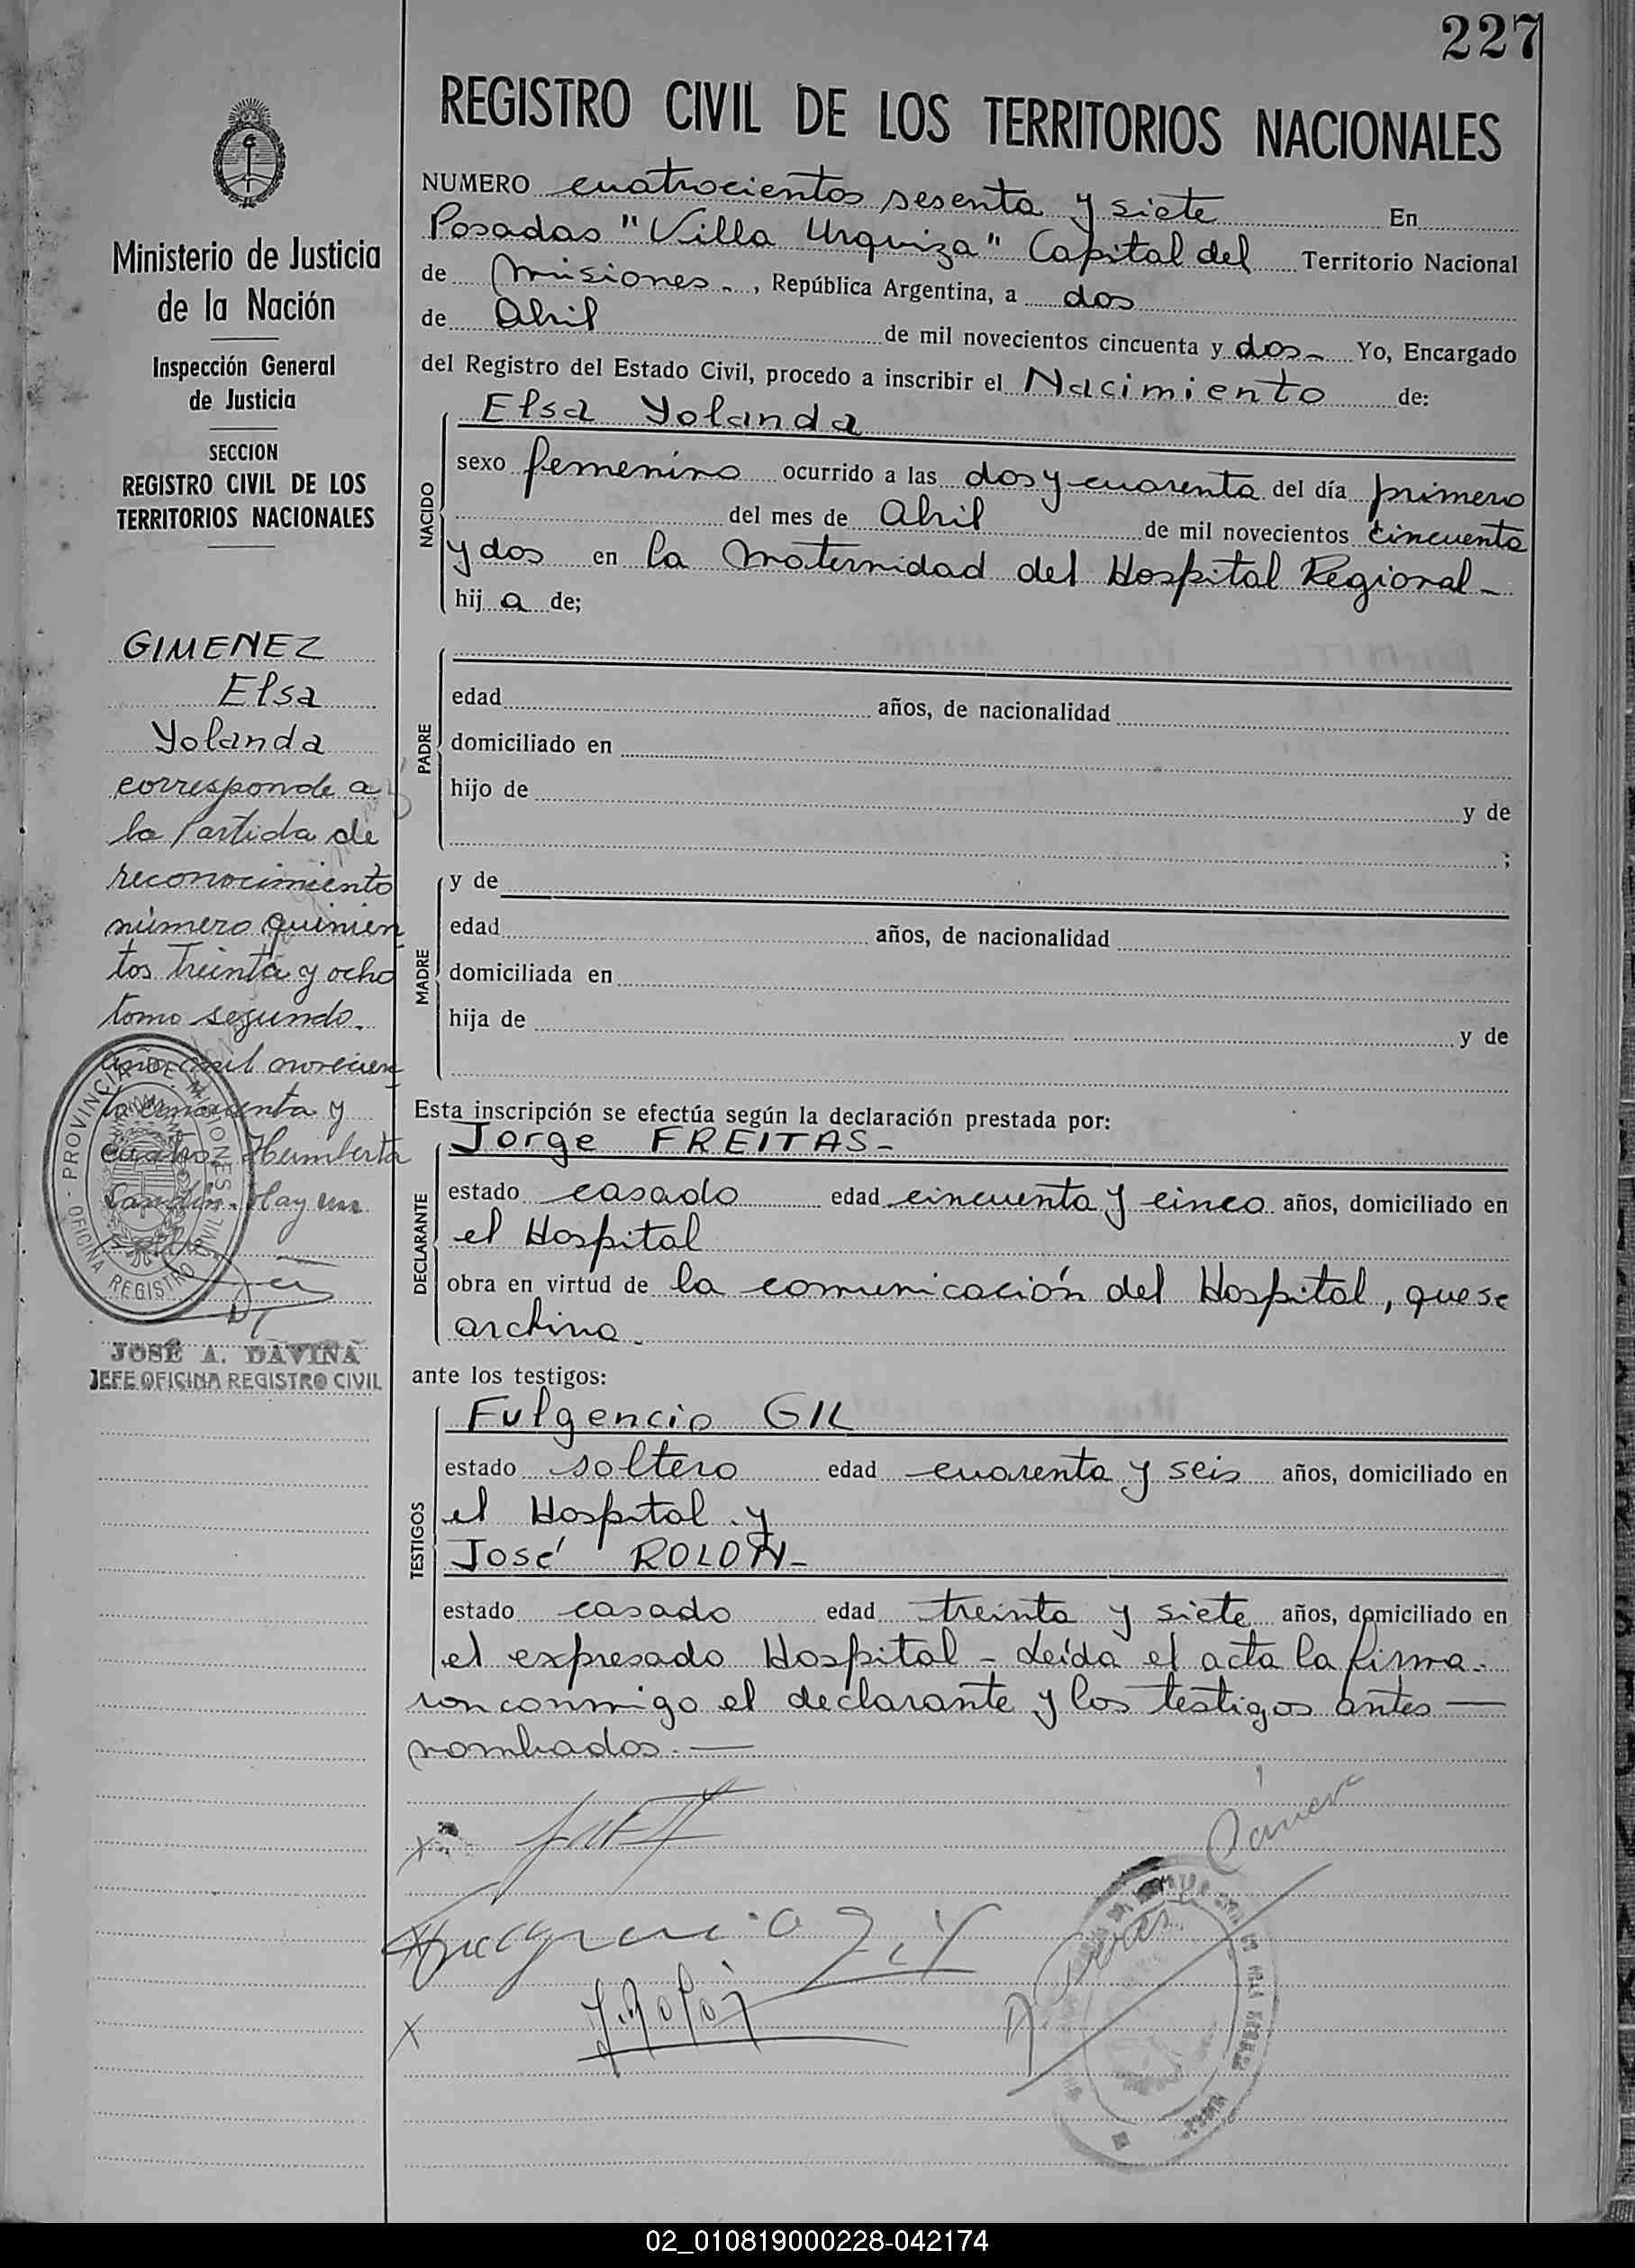 227
REGISTRO CIVIL DE LOS TERRITORIOS NACIONALES
Ministerio de Justicia
de la Nación
Inspección General
de Justicia
SECCION
REGISTRO CIVIL DE LOS
TERRITORIOS NACIONALES
GIMENEZ
Elsa
Yolanda
corresponde a
la Partida de
reconocimiento
número quinien
tos treinta y ocho
tomo segundo.
año mil novecien
to cincuenta y
cuatro. Humberta
Hay un
PROVINCIA DE MISIONES
OFICINA REGISTRO CIVIL
JOSÉ A. DAVIÑA
JEFE OFICINA REGISTRO CIVIL
NUMERO cuatrocientos sesenta y siete En
Posadas "Villa Urquiza" Capital del Territorio Nacional
de Misiones-, República Argentina, a dos
de Abril de mil novecientos cincuenta y dos- Yo, Encargado
del Registro del Estado Civil, procedo a inscribir el Nacimiento de:
NACIDO
Elsa Yolanda
sexo femenino ocurrido a las dos y cuarenta del día primero
del mes de Abril de mil novecientos cincuenta
y dos en la Maternidad del Hospital Regional-
hij a de;
PADRE
edad años, de nacionalidad
domiciliado en
hijo de y de
;
MADRE
y de
edad años, de nacionalidad
domiciliada en
hija de y de
Esta inscripción se efectúa según la declaración prestada por:
DECLARANTE
Jorge FREITAS-
estado casado edad cincuenta y cinco años, domiciliado en
el Hospital
obra en virtud de la comunicación del Hospital, que se
archiva.
ante los testigos:
TESTIGOS
Fulgencio GIL
estado soltero edad cuarenta y seis años, domiciliado en
el Hospital. y
José ROLON-
estado casado edad treinta y siete años, domiciliado en
el expresado Hospital - Leída el acta la firma-
ron conmigo el declarante y los testigos antes —
nombrados. —
J. Rolón
02_010819000228-042174